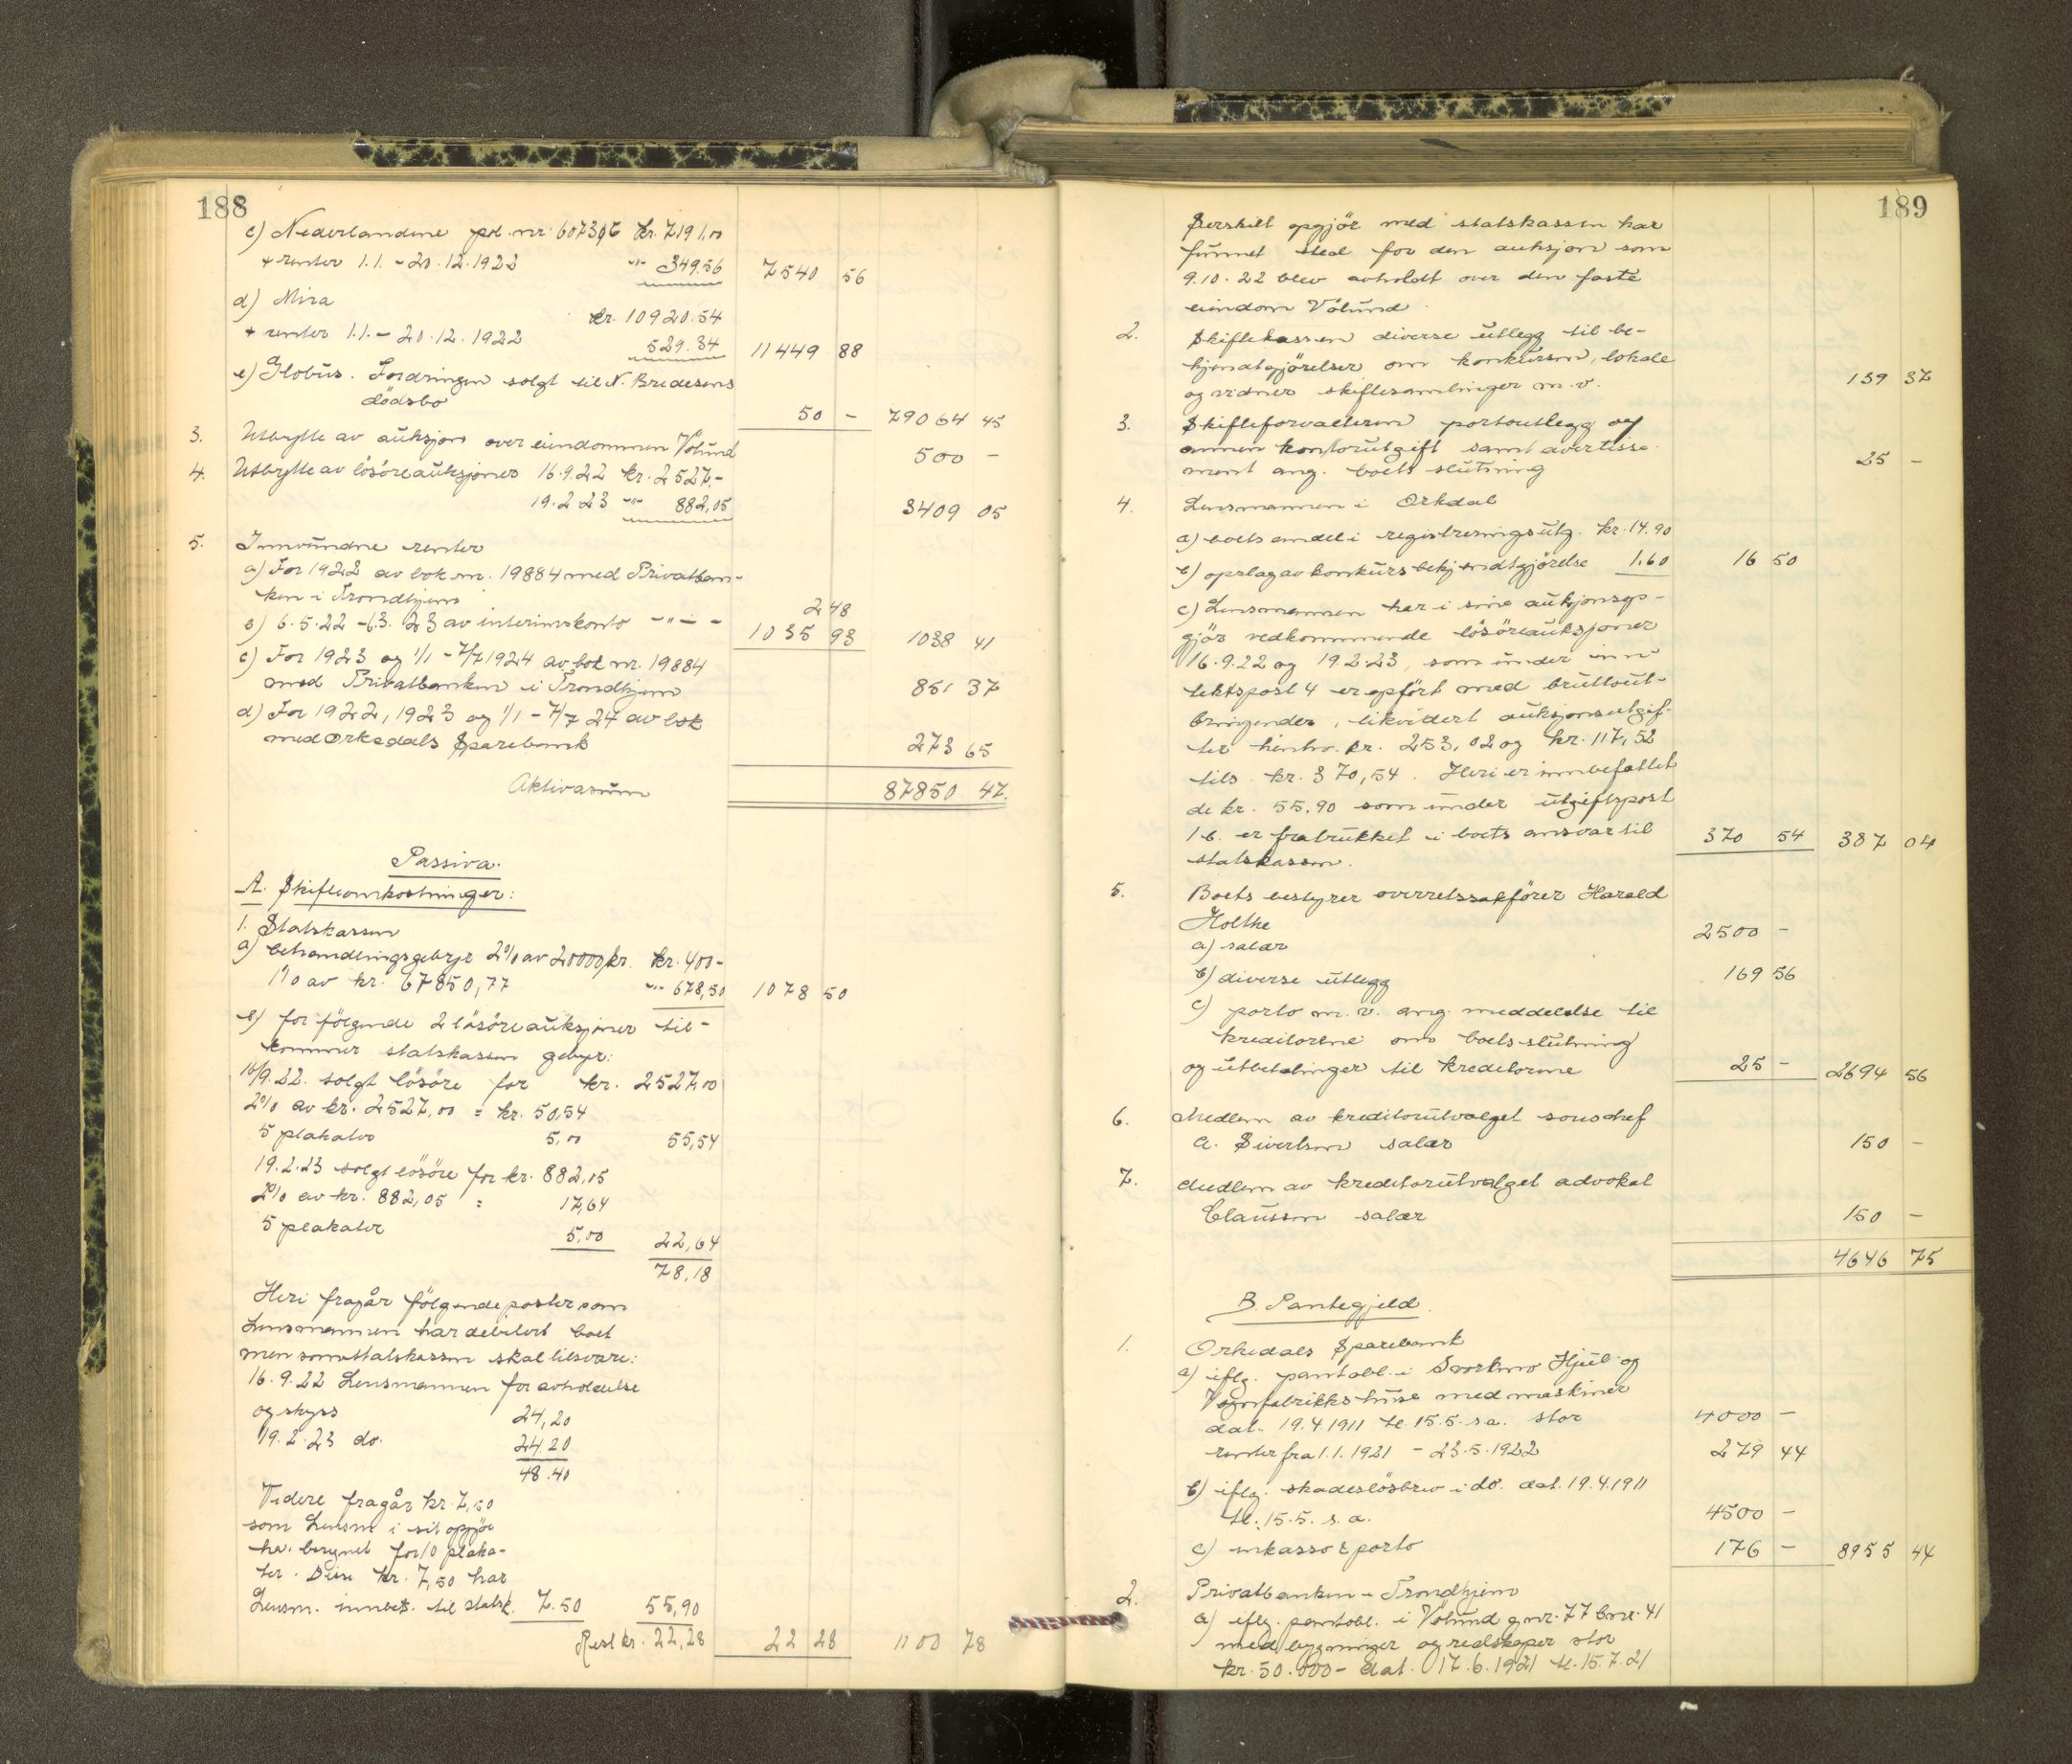 188
c) Nederlandene pol. nr. 607396 kr. 7191,00
+ renter 1.1. - 20.12.1922 " 349.56 7540 56
d) Mira kr. 10920.54
+ renter 1.1. - 20.12.1922 529.34 11449 88
e) Globus. Fordringen solgt til N. Bredesens
dödsbo 50 - 79064 45
3. Utbytte av auksjon over eiendommen Völund 500 -
4. Utbytte av lösöreauksjoner 16.9.22 kr. 2527.-
19.2.23 " 882,05 3409 05
5. Innvundne renter
a) For 1922 av bok nr. 19884 med Privatban-
ken i Trondhjem 2 48
b) 6.5.22 - 6.3.23 av interimskonto - " - 1035 93 1038 41
c) For 1923 og 1/1 - 7/7 1924 av bok nr. 19884
med Privatbanken i Trondhjem 851 37
d) For 1922, 1923 og 1/1 - 7/7 24 av bok
med Orkedals Sparebank 273 65
Aktivasum 87850 47.
Passiva.
A. Skifteomkostninger:
1. Statskassen
a) behandlingsgebyr 2% av 20000 kr. kr. 400-
1% av kr. 67850,77 " 678,50 1078 50
b) for fölgende 2 lösöreauksjoner til-
kommer statskassen gebyr:
16/9.22. solgt lösöre for kr. 2527,00
2% av kr. 2527,00 = kr. 50,54
5 plakater 5,00 55,54
19.2.23 solgt lösöre for kr. 882,05
2% av kr. 882,05 = 17,64
5 plakater 5,00 22,64
78,18
Heri fragår fölgende poster som
Lensmannen har debitert boet
men som statskassen skal tilsvare:
16.9.22 Lensmannen for avholdelse
og skyss 24,20
19.2.23 do. 24.20
48.40
Videre fragår kr. 7,50
som Lensm. i sit opgjör
har beregnet for 10 plaka-
ter. Disse kr. 7,50 har
Lensm. innbet. til statsk. 7.50 55,90
Rest kr. 22,28 22 28 1100 78
189
Særskilt opgjör med statskassen har
funnet sted for den auksjon som
9.10.22 blev avholdt over den faste
eiendom Völund.
2. Skiftekassen diverse utlegg til be-
kjendtgjörelser om konkursen, lokale
og vidner skiftesamlinger m.v. 139 37
3. Skifteforvalteren portoutlegg og
annen kontorutgift samt avertisse-
ment ang. boets slutning 25 -
4. Lensmannen i Orkdal
a) boets andel i registreringsutg. kr. 14.90
b) opslag av konkursbekjendtgjörelse 1.60 16 50
c) Lensmannen har i sine auksjonsop-
gjör vedkommende lösöreauksjoner
16.9.22 og 19.2.23, som under inn-
tektspost 4 er opfört med bruttout-
bringender, likvidert auksjonsutgif-
ter henhv. kr. 253,02 og kr. 117,52
tils. kr. 370,54. Heri er innbefattet
de kr. 55.90 som under utgiftspost
1 b. er fratrukket i boets ansvar til
statskassen. 370 54 387 04
5. Boets bestyrer overretssakförer Harald
Holtke
a) salær 2500 -
b) diverse utlegg 169 56
c) porto m.v. ang. meddelelse til
kreditorene om boets slutning
og utbetalinger til kreditorene 25 - 2694 56
6. Medlem av kreditorutvalget souschef
A. Sivertsen salær 150 -
7. Medlem av kreditorutvalget advokat
Claussen salær 150 -
4646 75
B. Pantegjeld.
1. Orkedals Sparebank
a) iflg. pantobl. i Svorkmo Hjul- og
Vognfabrikks huse med maskiner
dat. 19.4.1911 tl. 15.5. s.a. stor 4000 -
renter fra 1.1.1921 - 23.5.1922 279 44
b) iflg. skadeslösbrev i do. dat. 19.4.1911
tl. 15.5. s.a. 4500 -
c) inkasso & porto 176 - 8955 44
2. Privatbanken i Trondhjem
a) iflg. pantobl. i Völund gnr. 77 bnr. 41
med bygninger og redskaper stor
kr. 50.000- dat. 17.6.1921 tl. 15.7.21